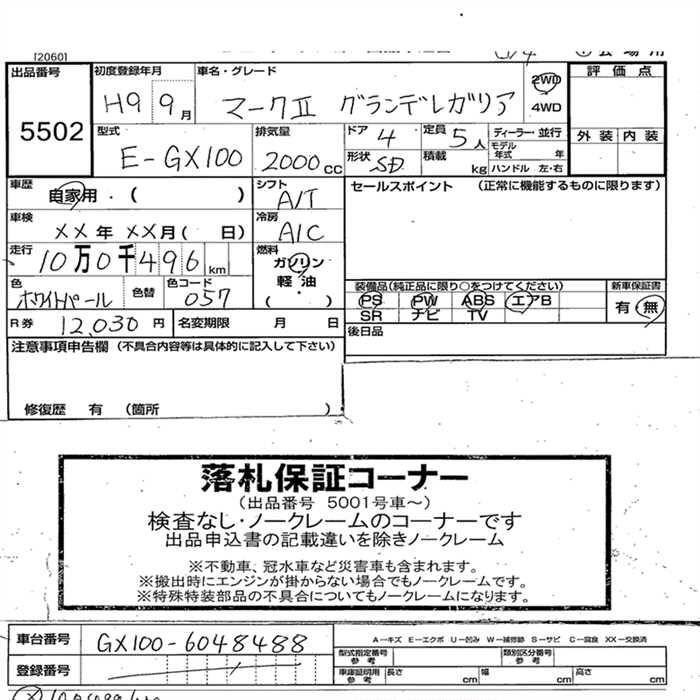 [2060]
出品番号 初度登録年月 車名・グレード 2WD 4WD 評価点
5502 H9 9月 マークⅡ グランデレガリア
外装 内装
型式 排気量 ドア 4 定員 5人 ディーラー・並行
E-GX100 2000cc 形状 SD 積載 kg モデル年式 年 ハンドル 左・右
車歴 自家用・( ) シフト A/T セールスポイント (正常に機能するものに限ります)
車検 XX年 XX月( 日) 冷房 A/C
走行 10万0千496km 燃料 ガソリン 軽油・( )
色 ホワイトパール 色替 色コード 057
装備品(純正品に限り○をつけてください) 新車保証書
PS PW ABS エアB 有・無
SR ナビ TV
R券 12,030円 名変期限 月 日 後日品
注意事項申告欄(不具合内容等は具体的に記入して下さい)
修復歴 有 (箇所 )
落札保証コーナー
(出品番号 5001号車~)
検査なし・ノークレームのコーナーです
出品申込書の記載違いを除きノークレーム
※不動車、冠水車など災害車も含まれます。
※搬出時にエンジンが掛からない場合でもノークレームです。
※特殊特装部品の不具合についてもノークレームになります。
車台番号 GX100-6048488 A-キズ E-エクボ U-凹み W-補修跡 S-サビ C-腐食 XX-交換済
登録番号 型式指定番号参考 類別区分番号参考
車庫証明用参考 長さ cm 幅 cm 高さ cm